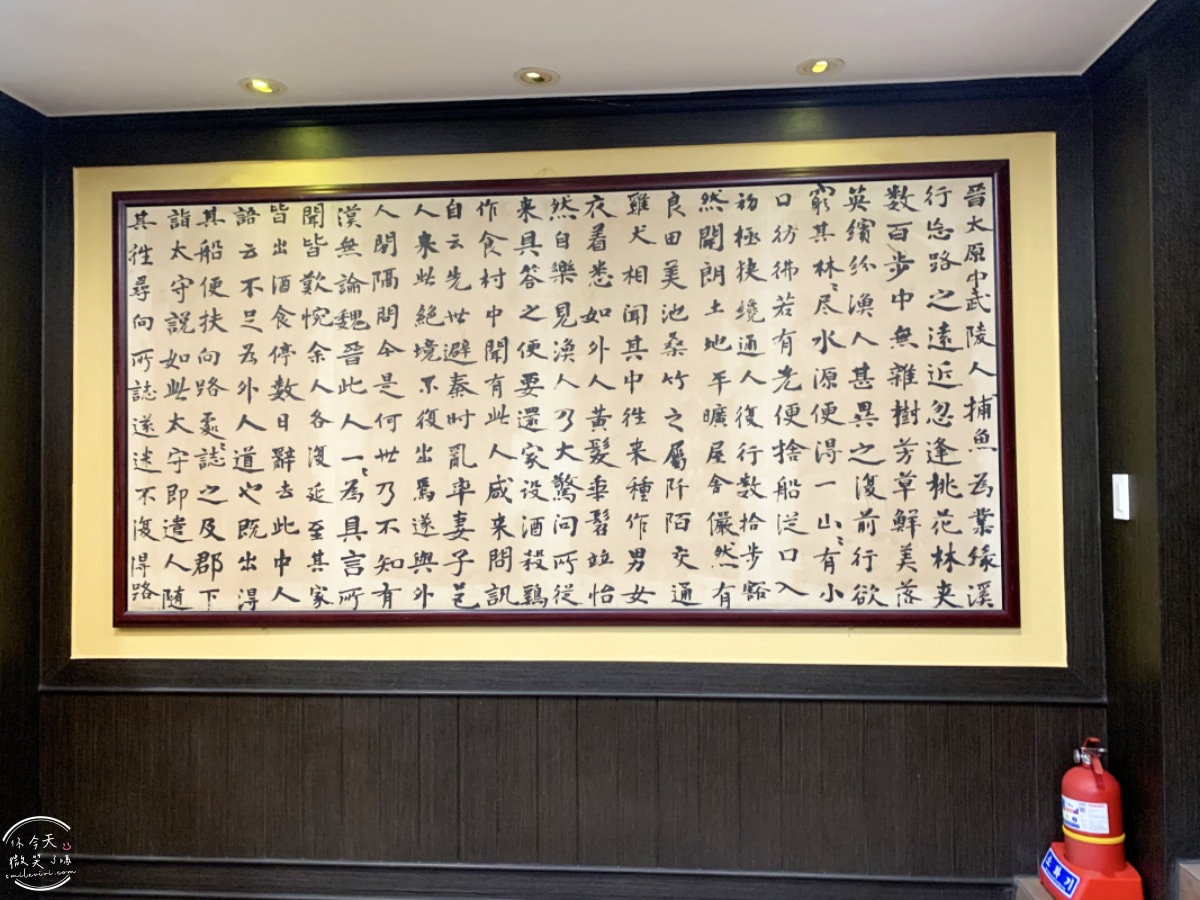 晉太原中武陵人捕魚為業緣溪
行忘路之遠近忽逢桃花林夾
数百步中無雜樹芳草鮮美落
英繽紛漁人甚異之復前行欲
窮其林〻尽水源便得一山〻有小
口彷彿若有光便捨船從口入
初極狭纔通人復行数拾步豁
然開朗土地平曠屋舍儼然有
良田美池桑竹之屬阡陌交通
雞犬相聞其中往来種作男女
衣着悉如外人黃髮垂髫竝怡
然自樂見漁人乃大驚問所從
来具答之便要還家设酒殺鷄
作食村中聞有此人咸来問訊
自云先世避秦时亂率妻子邑
人来此絕境不復出焉遂與外
人閒隔問今是何世乃不知有
漢無論魏晉此人一〻為具言所
聞皆歎惋余人各復延至其家
皆出酒食停数日辭去此中人
語云不足為外人道也既出得
其船便扶向路處〻誌之及郡下
詣太守說如此太守即遣人随
其往尋向所誌遂迷不復得路
소화기
你今天
微笑了嗎
smilevini.com